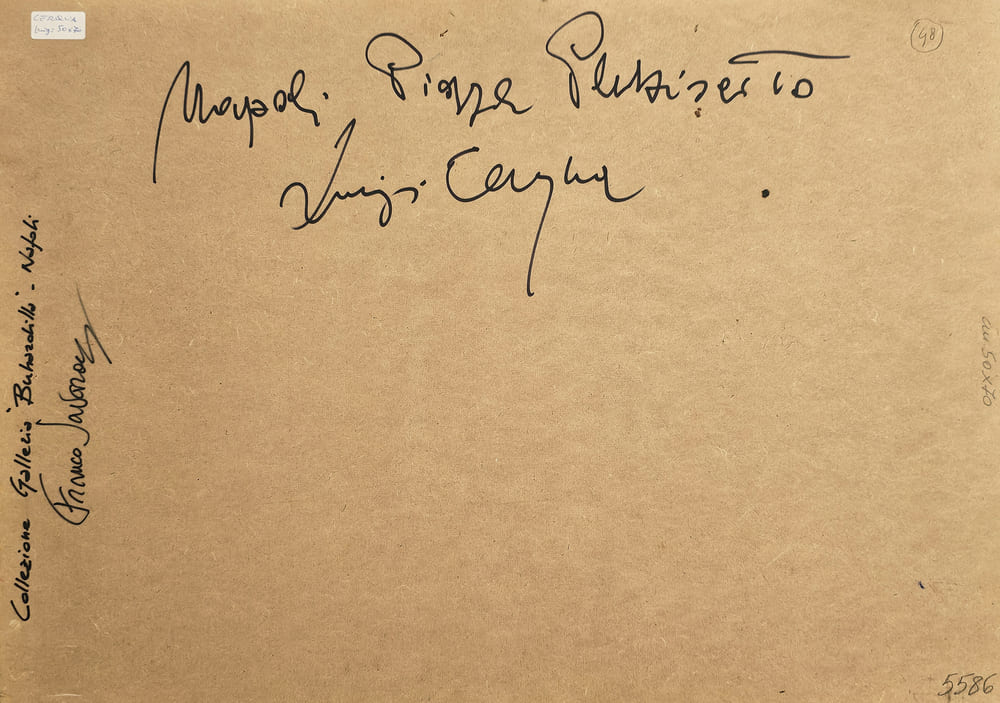 CERQUA
Luigi 50x70
48
Napoli Piazza Plebiscito
Luigi Cerqua
Collezione Galleria "Buhardilla" - Napoli
Franco
cm 50x70
5586